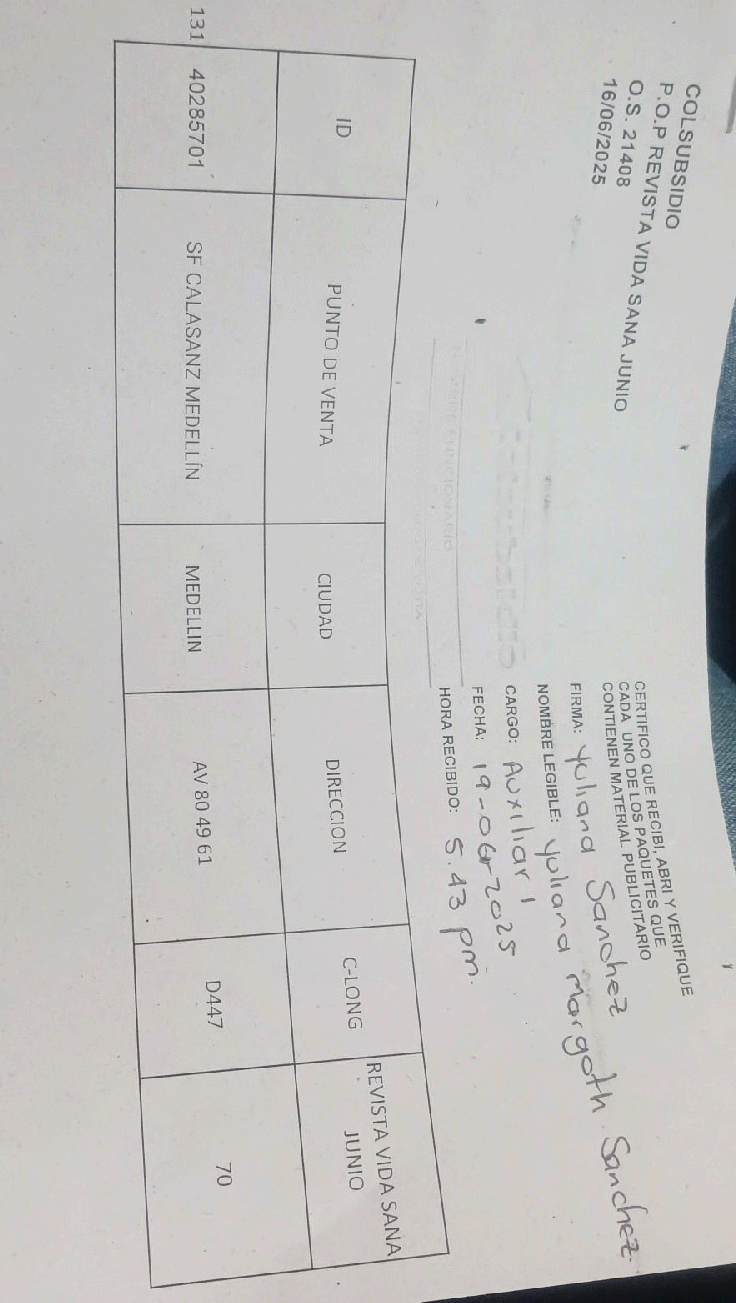 COLSUBSIDIO
P.O.P REVISTA VIDA SANA JUNIO
O.S. 21408
16/06/2025
CERTIFICO QUE RECIBI, ABRI Y VERIFIQUE
CADA UNO DE LOS PAQUETES QUE
CONTIENEN MATERIAL PUBLICITARIO
FIRMA: Yuliana Sanchez
NOMBRE LEGIBLE: Yuliana Margoth Sanchez
CARGO: Auxiliar 1
FECHA: 19-06-2025
HORA RECIBIDO: 5.43 pm.
ID PUNTO DE VENTA CIUDAD DIRECCION C-LONG REVISTA VIDA SANA JUNIO
131 40285701 SF CALASANZ MEDELLÍN MEDELLIN AV 80 49 61 D447 70